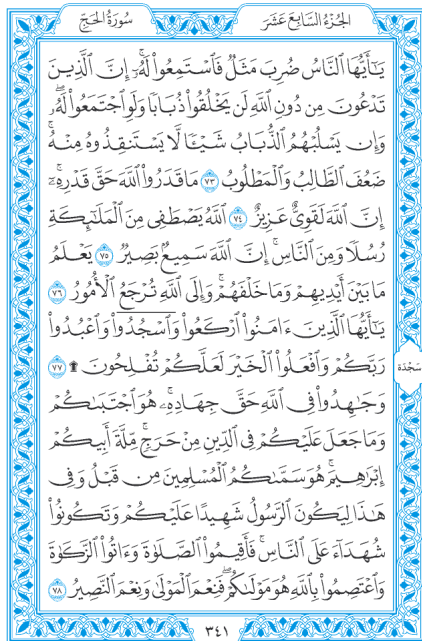 الجُزْءُ السَّابِعَ عَشَرَ
سُورَةُ الحَجِّ
يَـٰٓأَيُّهَا ٱلنَّاسُ ضُرِبَ مَثَلٌ فَٱسْتَمِعُوا۟ لَهُۥٓ ۚ إِنَّ ٱلَّذِينَ
تَدْعُونَ مِن دُونِ ٱللَّهِ لَن يَخْلُقُوا۟ ذُبَابًا وَلَوِ ٱجْتَمَعُوا۟ لَهُۥ ۖ
وَإِن يَسْلُبْهُمُ ٱلذُّبَابُ شَيْـًٔا لَّا يَسْتَنقِذُوهُ مِنْهُ ۚ
ضَعُفَ ٱلطَّالِبُ وَٱلْمَطْلُوبُ ٧٣ مَا قَدَرُوا۟ ٱللَّهَ حَقَّ قَدْرِهِۦٓ ۗ
إِنَّ ٱللَّهَ لَقَوِىٌّ عَزِيزٌ ٧٤ ٱللَّهُ يَصْطَفِى مِنَ ٱلْمَلَـٰٓئِكَةِ
رُسُلًا وَمِنَ ٱلنَّاسِ ۚ إِنَّ ٱللَّهَ سَمِيعٌۢ بَصِيرٌ ٧٥ يَعْلَمُ
مَا بَيْنَ أَيْدِيهِمْ وَمَا خَلْفَهُمْ ۗ وَإِلَى ٱللَّهِ تُرْجَعُ ٱلْأُمُورُ ٧٦
يَـٰٓأَيُّهَا ٱلَّذِينَ ءَامَنُوا۟ ٱرْكَعُوا۟ وَٱسْجُدُوا۟ وَٱعْبُدُوا۟
رَبَّكُمْ وَٱفْعَلُوا۟ ٱلْخَيْرَ لَعَلَّكُمْ تُفْلِحُونَ ۩ ٧٧
سَجْدَة
وَجَـٰهِدُوا۟ فِى ٱللَّهِ حَقَّ جِهَادِهِۦ ۚ هُوَ ٱجْتَبَىٰكُمْ
وَمَا جَعَلَ عَلَيْكُمْ فِى ٱلدِّينِ مِنْ حَرَجٍ ۚ مِّلَّةَ أَبِيكُمْ
إِبْرَٰهِيمَ ۚ هُوَ سَمَّىٰكُمُ ٱلْمُسْلِمِينَ مِن قَبْلُ وَفِى
هَـٰذَا لِيَكُونَ ٱلرَّسُولُ شَهِيدًا عَلَيْكُمْ وَتَكُونُوا۟
شُهَدَآءَ عَلَى ٱلنَّاسِ ۚ فَأَقِيمُوا۟ ٱلصَّلَوٰةَ وَءَاتُوا۟ ٱلزَّكَوٰةَ
وَٱعْتَصِمُوا۟ بِٱللَّهِ هُوَ مَوْلَىٰكُمْ ۖ فَنِعْمَ ٱلْمَوْلَىٰ وَنِعْمَ ٱلنَّصِيرُ ٧٨
٣٤١